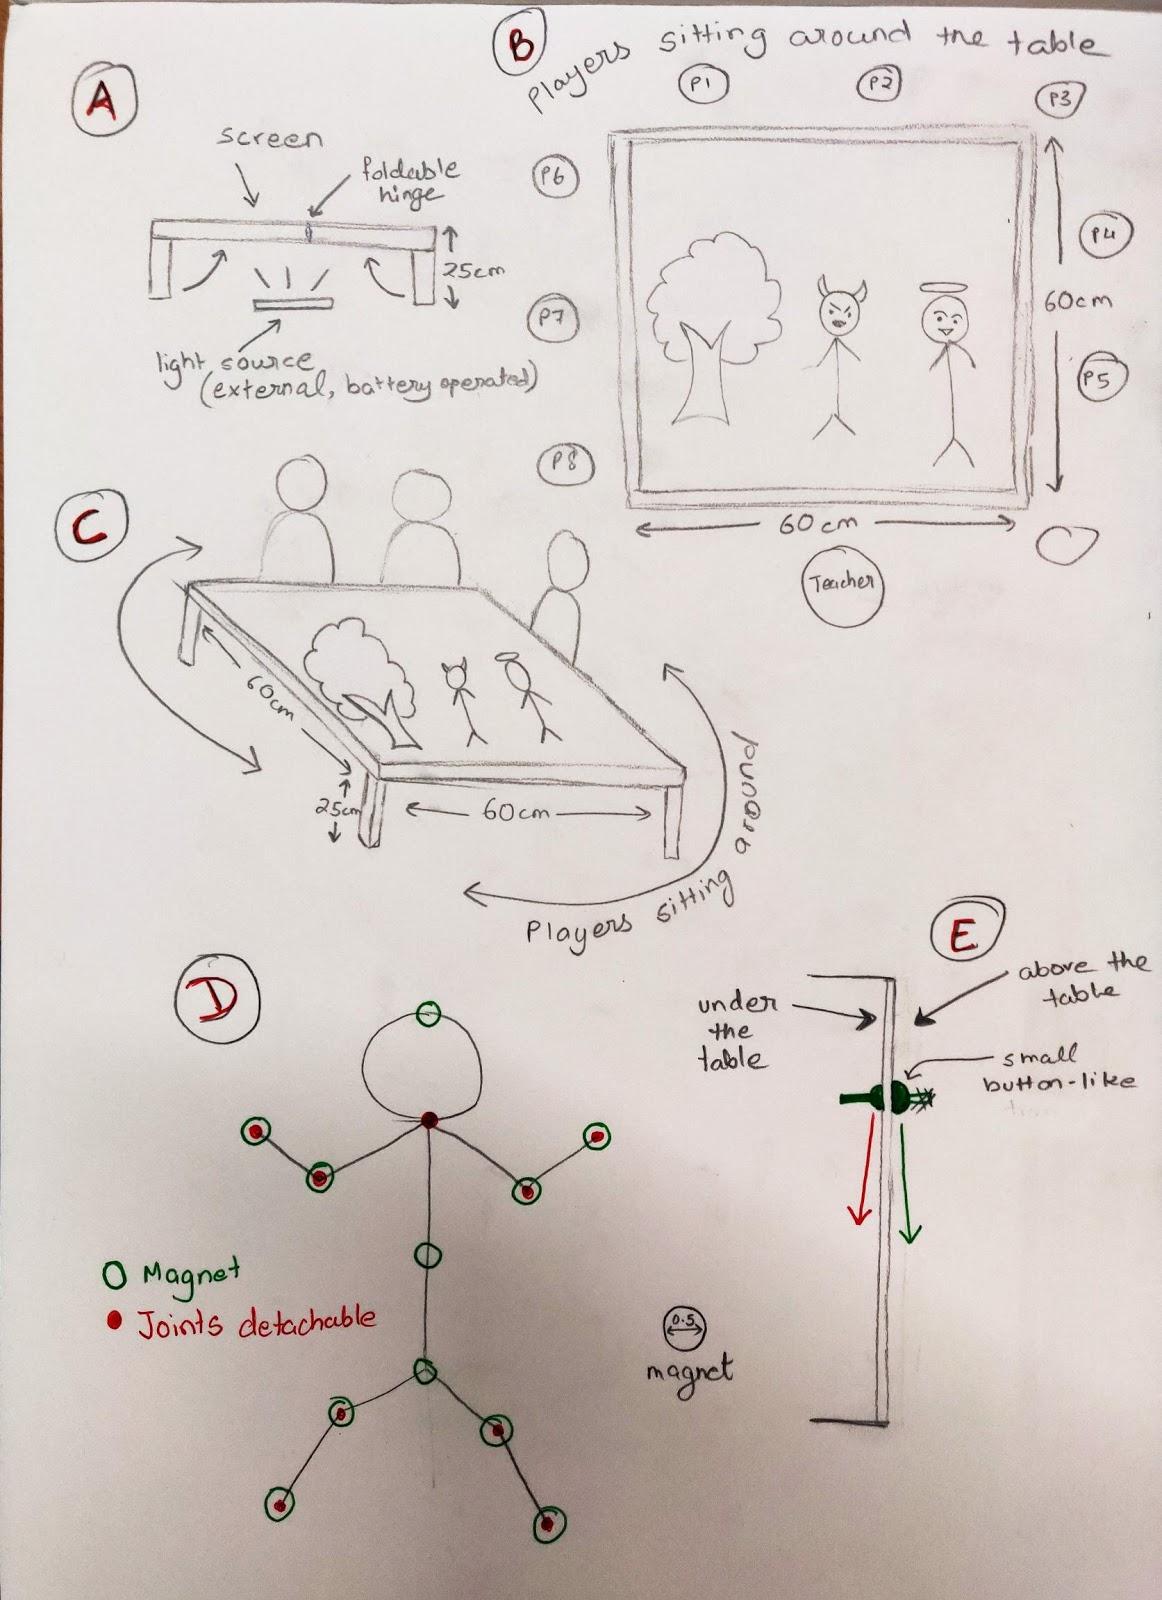 A
screen
foldable
hinge
25cm
light source
(external, battery operated)
B
Players sitting around the table
P1
P2
P3
P6
P4
P7
60cm
P5
P8
60cm
Teacher
C
60cm
25cm
60cm
Players sitting around
D
O Magnet
Joints detachable
E
above the
table
under
the
table
small
button-like
0.5
magnet